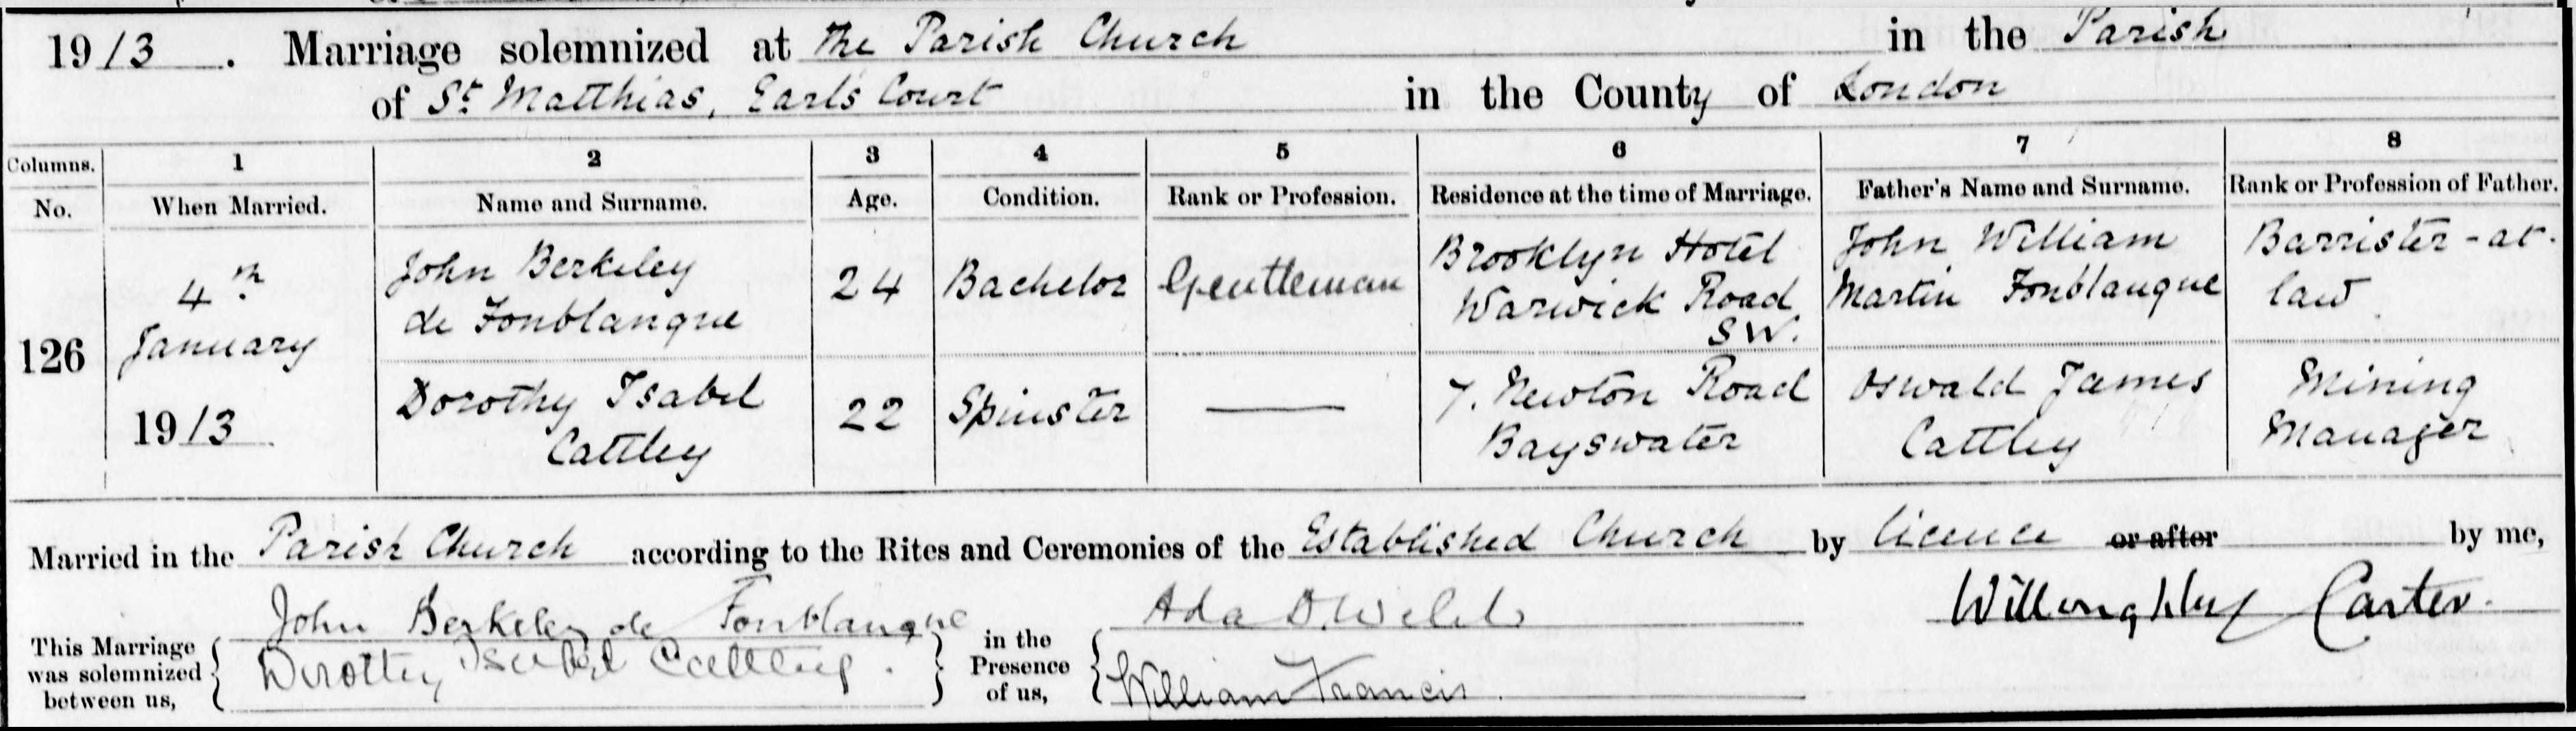 1913. Marriage solemnized at The Parish Church in the Parish
of St. Matthias, Earl's Court in the County of London
Columns. 1 2 3 4 5 6 7 8
No. When Married. Name and Surname. Age. Condition. Rank or Profession. Residence at the time of Marriage. Father's Name and Surname. Rank or Profession of Father.
126
4th
January
1913
John Berkeley
de Fonblanque
24
Bachelor
Gentleman
Brooklyn Hotel
Warwick Road
S W.
John William
Martin Fonblanque
Barrister-at-
law
Dorothy Isabel
Cattley
22
Spinster
7. Newton Road
Bayswater
Oswald James
Cattley
Mining
Manager
Married in the Parish Church according to the Rites and Ceremonies of the Established Church by licence or after by me,
This Marriage
was solemnized
between us,
John Berkeley de Fonblanque
Dorothy Isabel Cattley.
in the
Presence
of us,
Ada D.
William Francis.
Willoughby Carter.